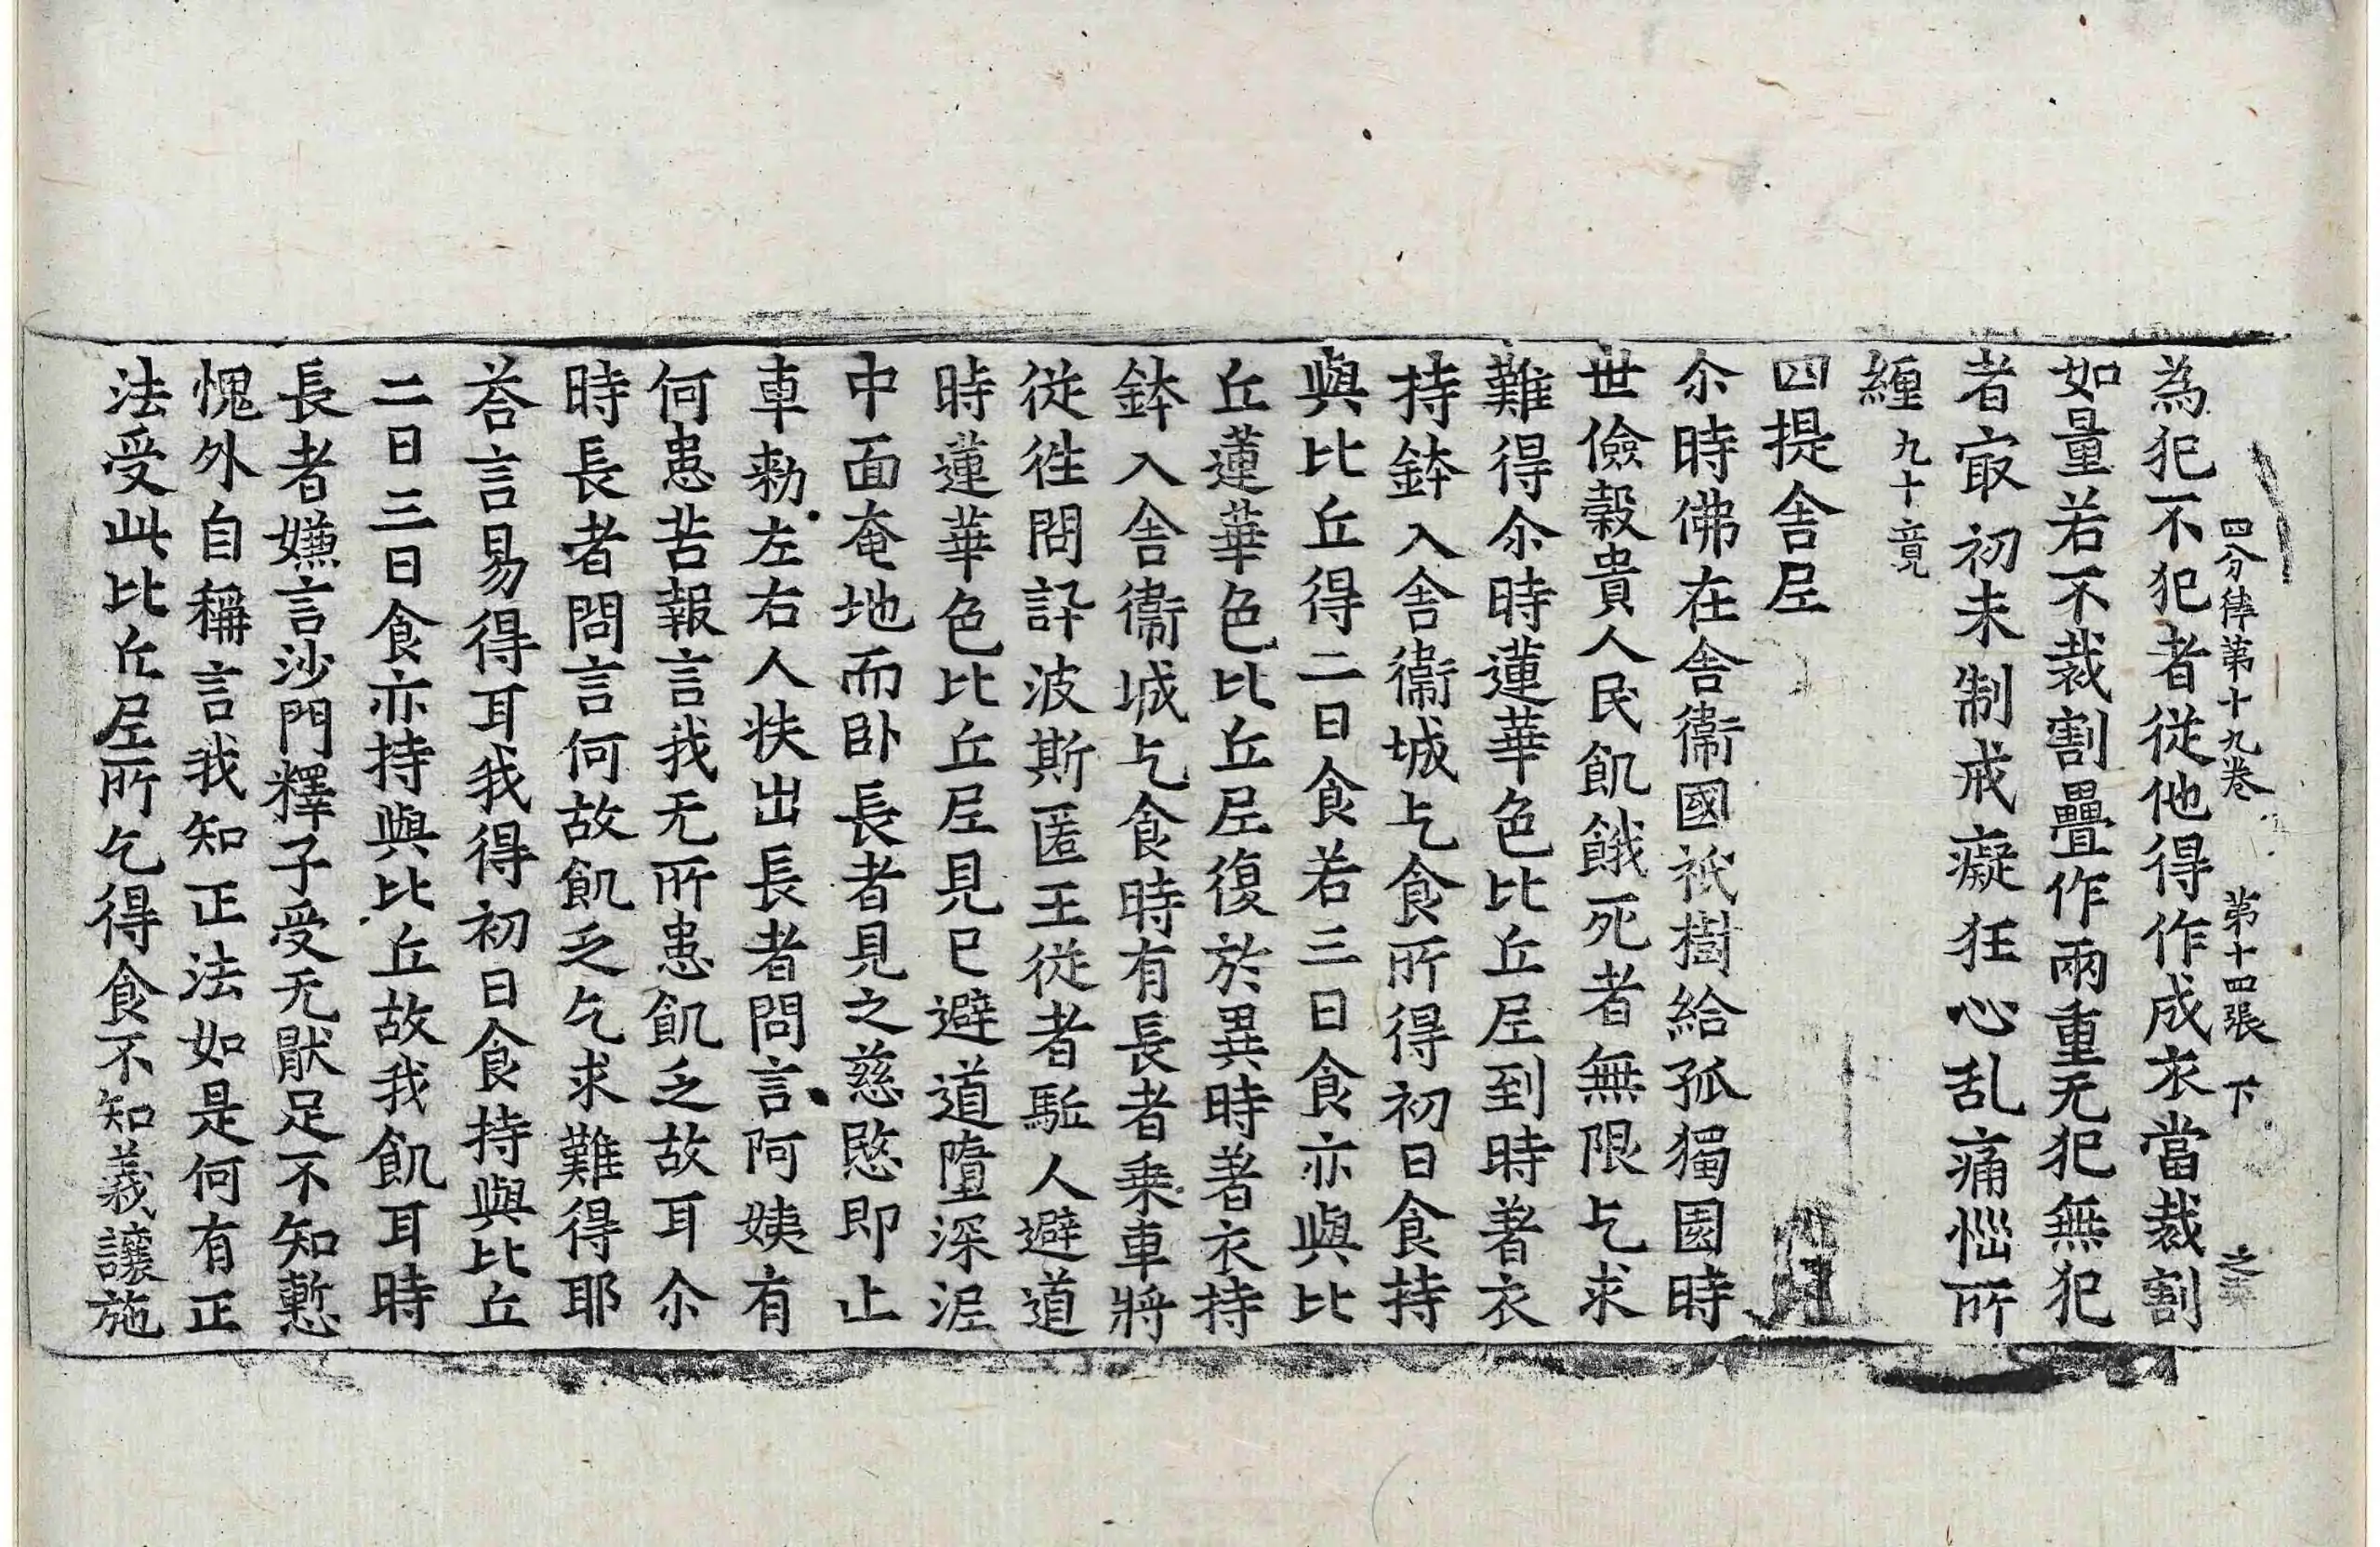 四分律第十九卷　第十四張　下
為犯不犯者從他得作成衣當裁割
如量若不裁割疊作兩重无犯無犯
者㝡初未制戒癡狂心乱痛惱所
纏九十竟
四提舍尼
尒時佛在舍衞國祇樹給孤獨園時
世儉穀貴人民飢餓死者無限乞求
難得尒時蓮華色比丘尼到時著衣
持鉢入舍衞城乞食所得初日食持
與比丘得二日食若三日食亦與比
丘蓮華色比丘尼復於異時著衣持
鉢入舍衞城乞食時有長者乗車將
從徃問訊波斯匿王從者駈人避道
時蓮華色比丘尼見已避道墮深泥
中面奄地而卧長者見之慈愍即止
車勑左右人扶出長者問言阿姨有
何患苦報言我无所患飢乏故耳尒
時長者問言何故飢乏乞求難得耶
荅言易得耳我得初日食持與比丘
二日三日食亦持與比丘故我飢耳時
長者嫌言沙門釋子受无猒足不知慙
愧外自稱言我知正法如是何有正
法受此比丘尼所乞得食不知義讓施